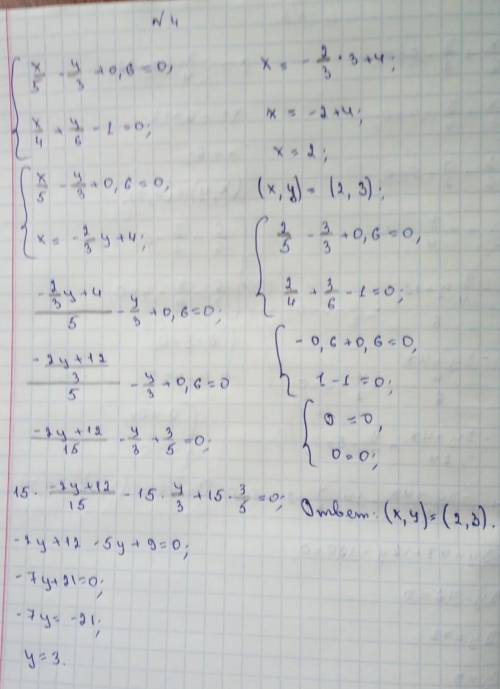 № 4
x/5 - y/3 + 0,6 = 0,
x/4 + y/6 - 1 = 0;
x/5 - y/3 + 0,6 = 0,
x = -2/3 y + 4;
(-2/3 y + 4)/5 - y/3 + 0,6 = 0;
((-2y + 12)/3)/5 - y/3 + 0,6 = 0
(-2y + 12)/15 - y/3 + 3/5 = 0;
15 · (-2y + 12)/15 - 15 · y/3 + 15 · 3/5 = 0;
-2y + 12 - 5y + 9 = 0;
-7y + 21 = 0;
-7y = -21;
y = 3.
x = -2/3 · 3 + 4;
x = -2 + 4;
x = 2;
(x, y) = (2, 3);
2/5 - 3/3 + 0,6 = 0,
2/4 + 3/6 - 1 = 0;
-0,6 + 0,6 = 0,
1 - 1 = 0;
0 = 0,
0 = 0;
Ответ: (x, y) = (2, 3).